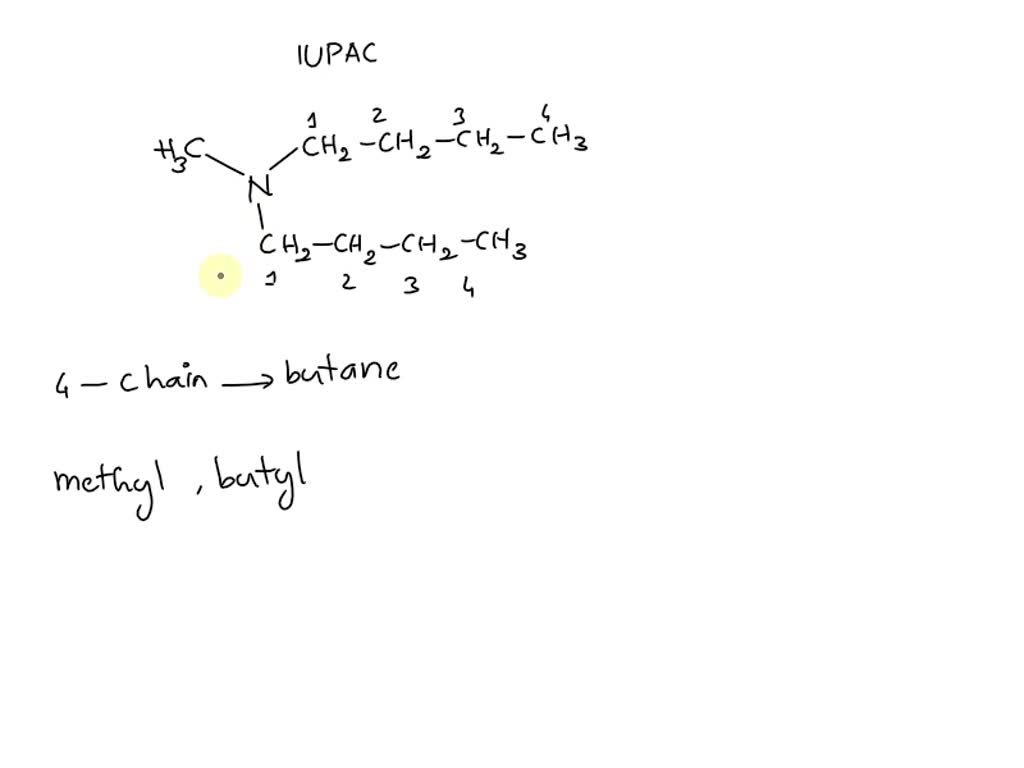 IUPAC
1 2 3 4
H3C CH2-CH2-CH2-CH3
N
CH2-CH2-CH2-CH3
1 2 3 4
4 - chain → butane
methyl, butyl